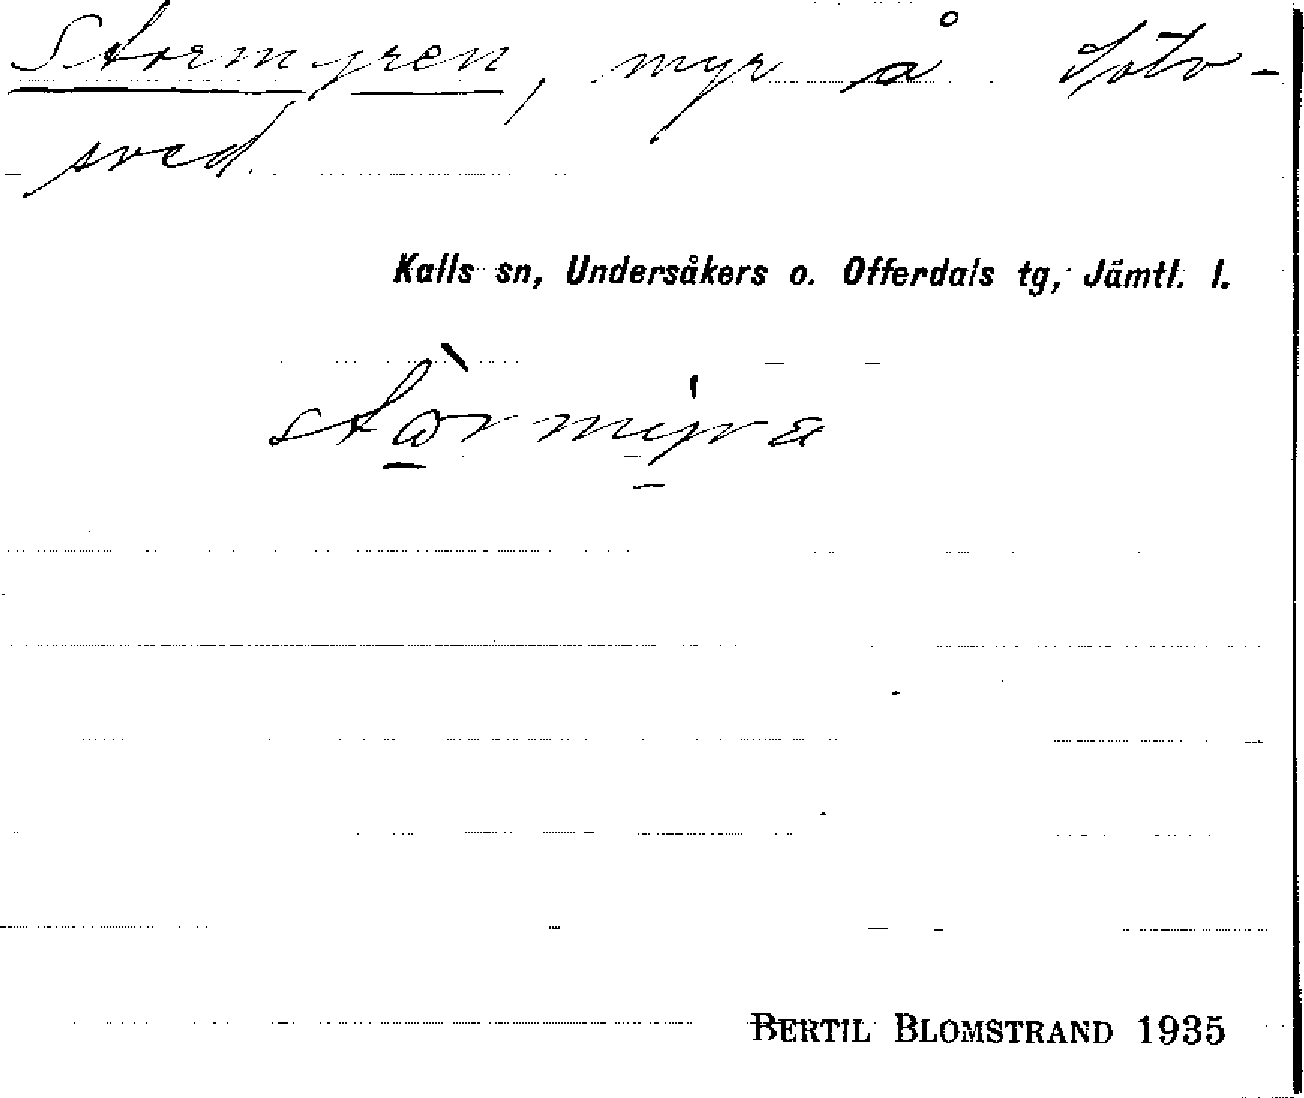 Stormyren, myr å
sved.
Kalls sn, Undersåkers o. Offerdals tg, Jämtl. l.
BERTIL BLOMSTRAND 1935